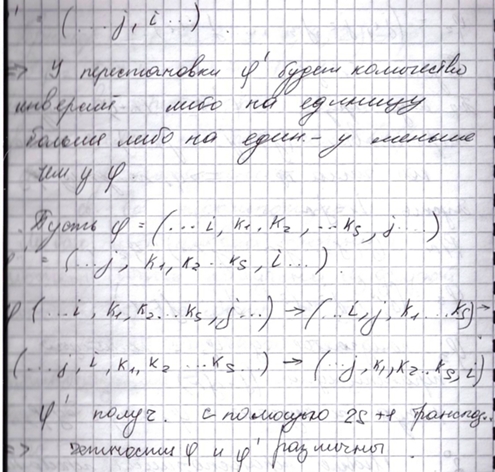 ' = (...j, i...).
=> У перестановки φ' будет количество
инверсий либо на единицу
больше либо на един-у меньше
чем у φ.
Пусть φ = (...i, k₁, k₂, ...kₛ, j...)
φ' = (...j, k₁, k₂...kₛ, i...)
φ (...i, k₁, k₂...kₛ, j...) → (...i, j, k₁...kₛ) →
(...j, i, k₁, k₂...kₛ...) → (...j, k₁, k₂..kₛ, i)
φ' получ. с помощью 2S+1 транспоз.
=> четности φ и φ' различны.